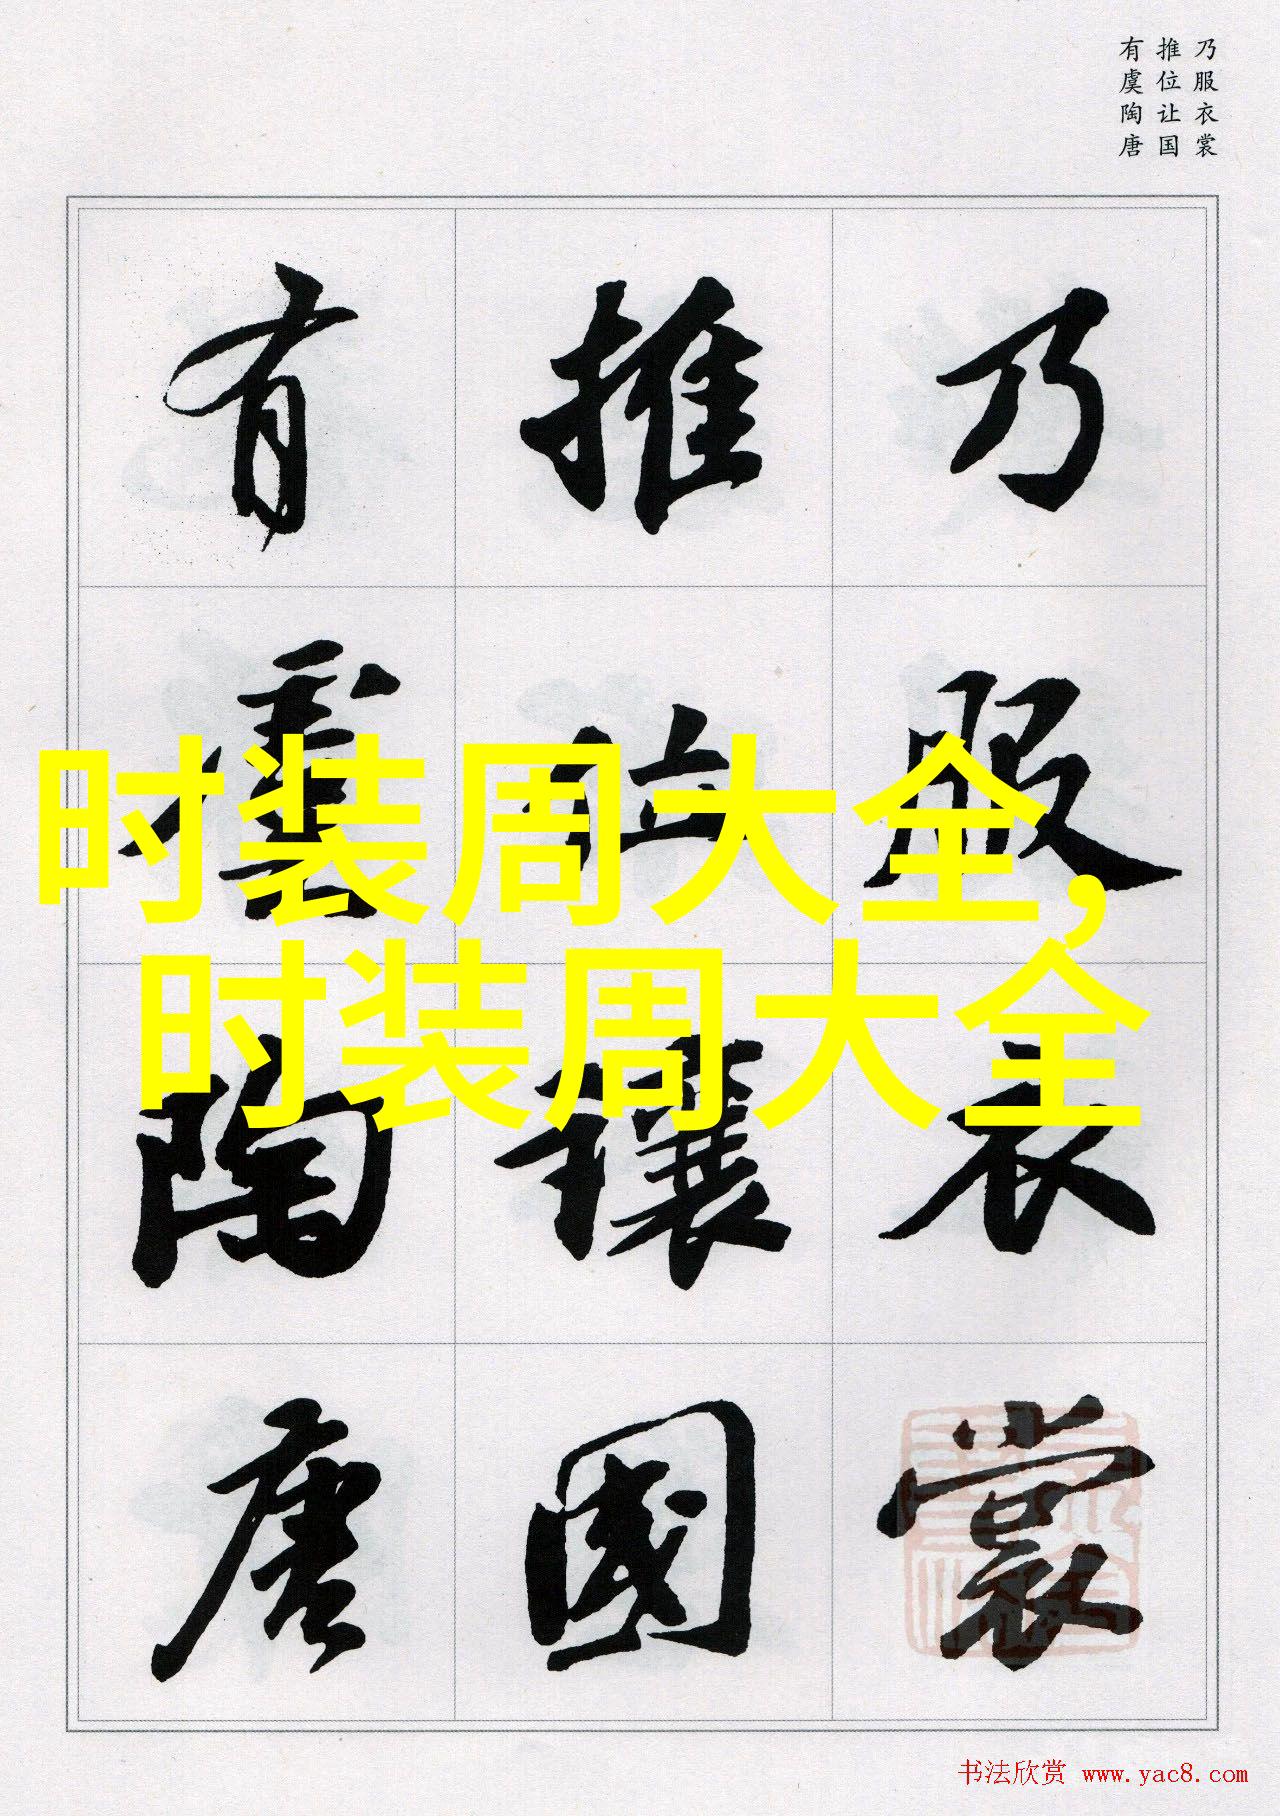 乃服衣裳
推位让国
有虞陶唐
乃服衣裳
推位讓國
有虞陶唐
时装周大全,
时装周大全
书法欣赏 www.yac8.com